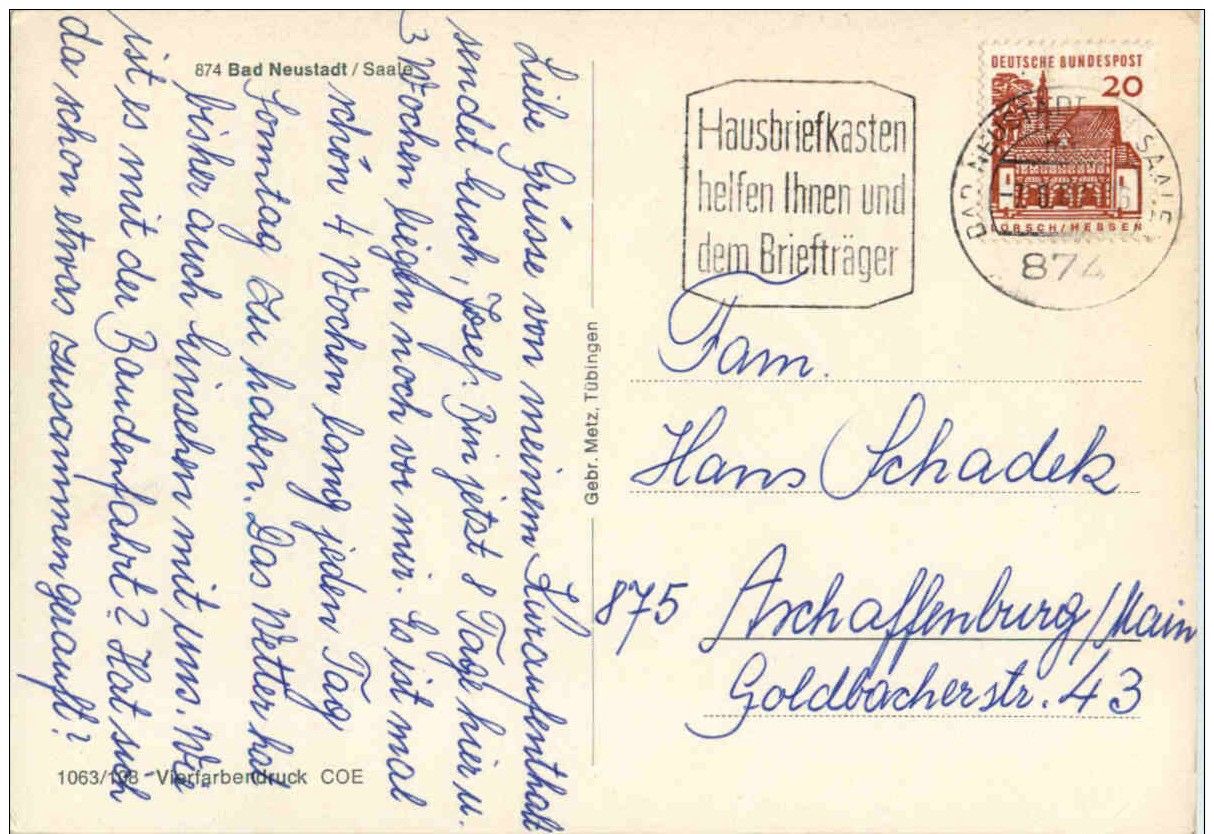 874 Bad Neustadt / Saale
Liebe Grüsse von meinem Kuraufenthalt
sendet Euch, Josef. Bin jetzt 8 Tage hier u.
3 Wochen liegen noch vor mir. Es ist mal
schön 4 Wochen lang jeden Tag
Sonntag zu haben. Das Wetter hat
bisher auch Einsehen mit uns. Wie
ist es mit der Baudenfahrt? Hat sich
da schon etwas zusammengerauft?
1063/198 Vierfarbendruck COE
Gebr. Metz, Tübingen
Hausbriefkasten
helfen Ihnen und
dem Briefträger
DEUTSCHE BUNDESPOST
20
LORSCH/HESSEN
BAD NEUSTADT SAALE
874
Fam.
Hans Schadek
875 Aschaffenburg/Main
Goldbacherstr. 43